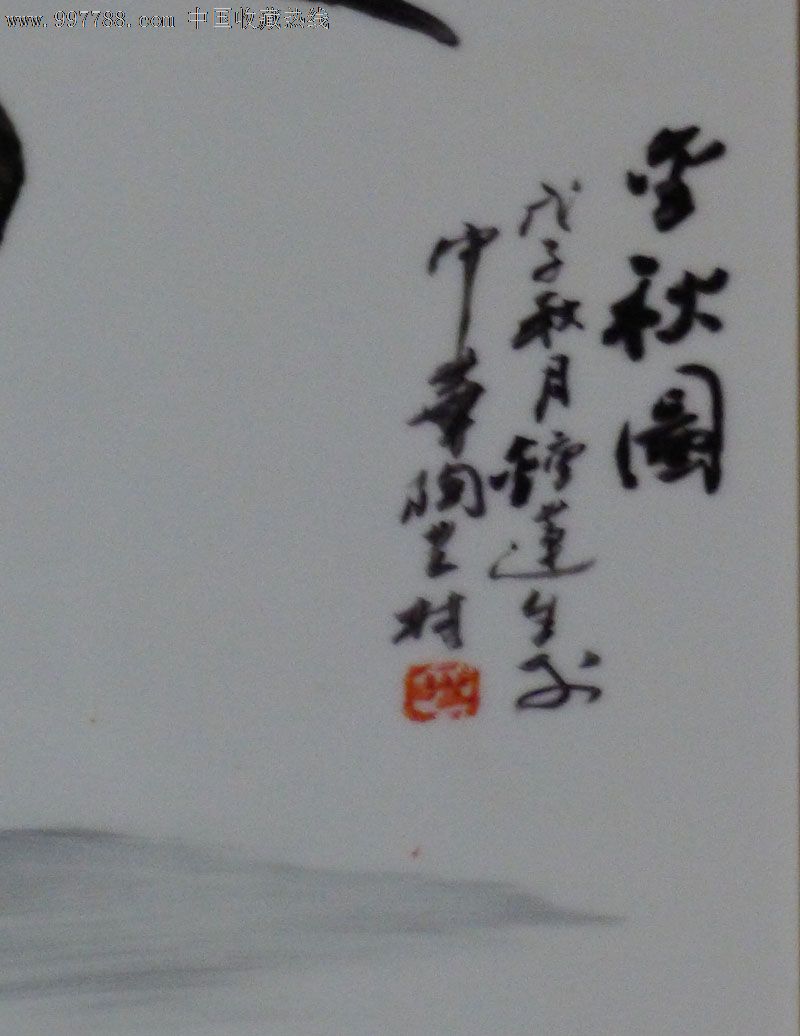 www.997788.com 中国收藏热线
金秋图
戊子秋月钟莲生写
中华陶艺村